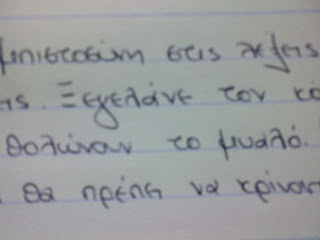 μπιστοσύνη στις λέξεις
ης. Ξεγελάνε τον κό
θολώνουν το μυαλό.
θα πρέπει να κρίνοντ